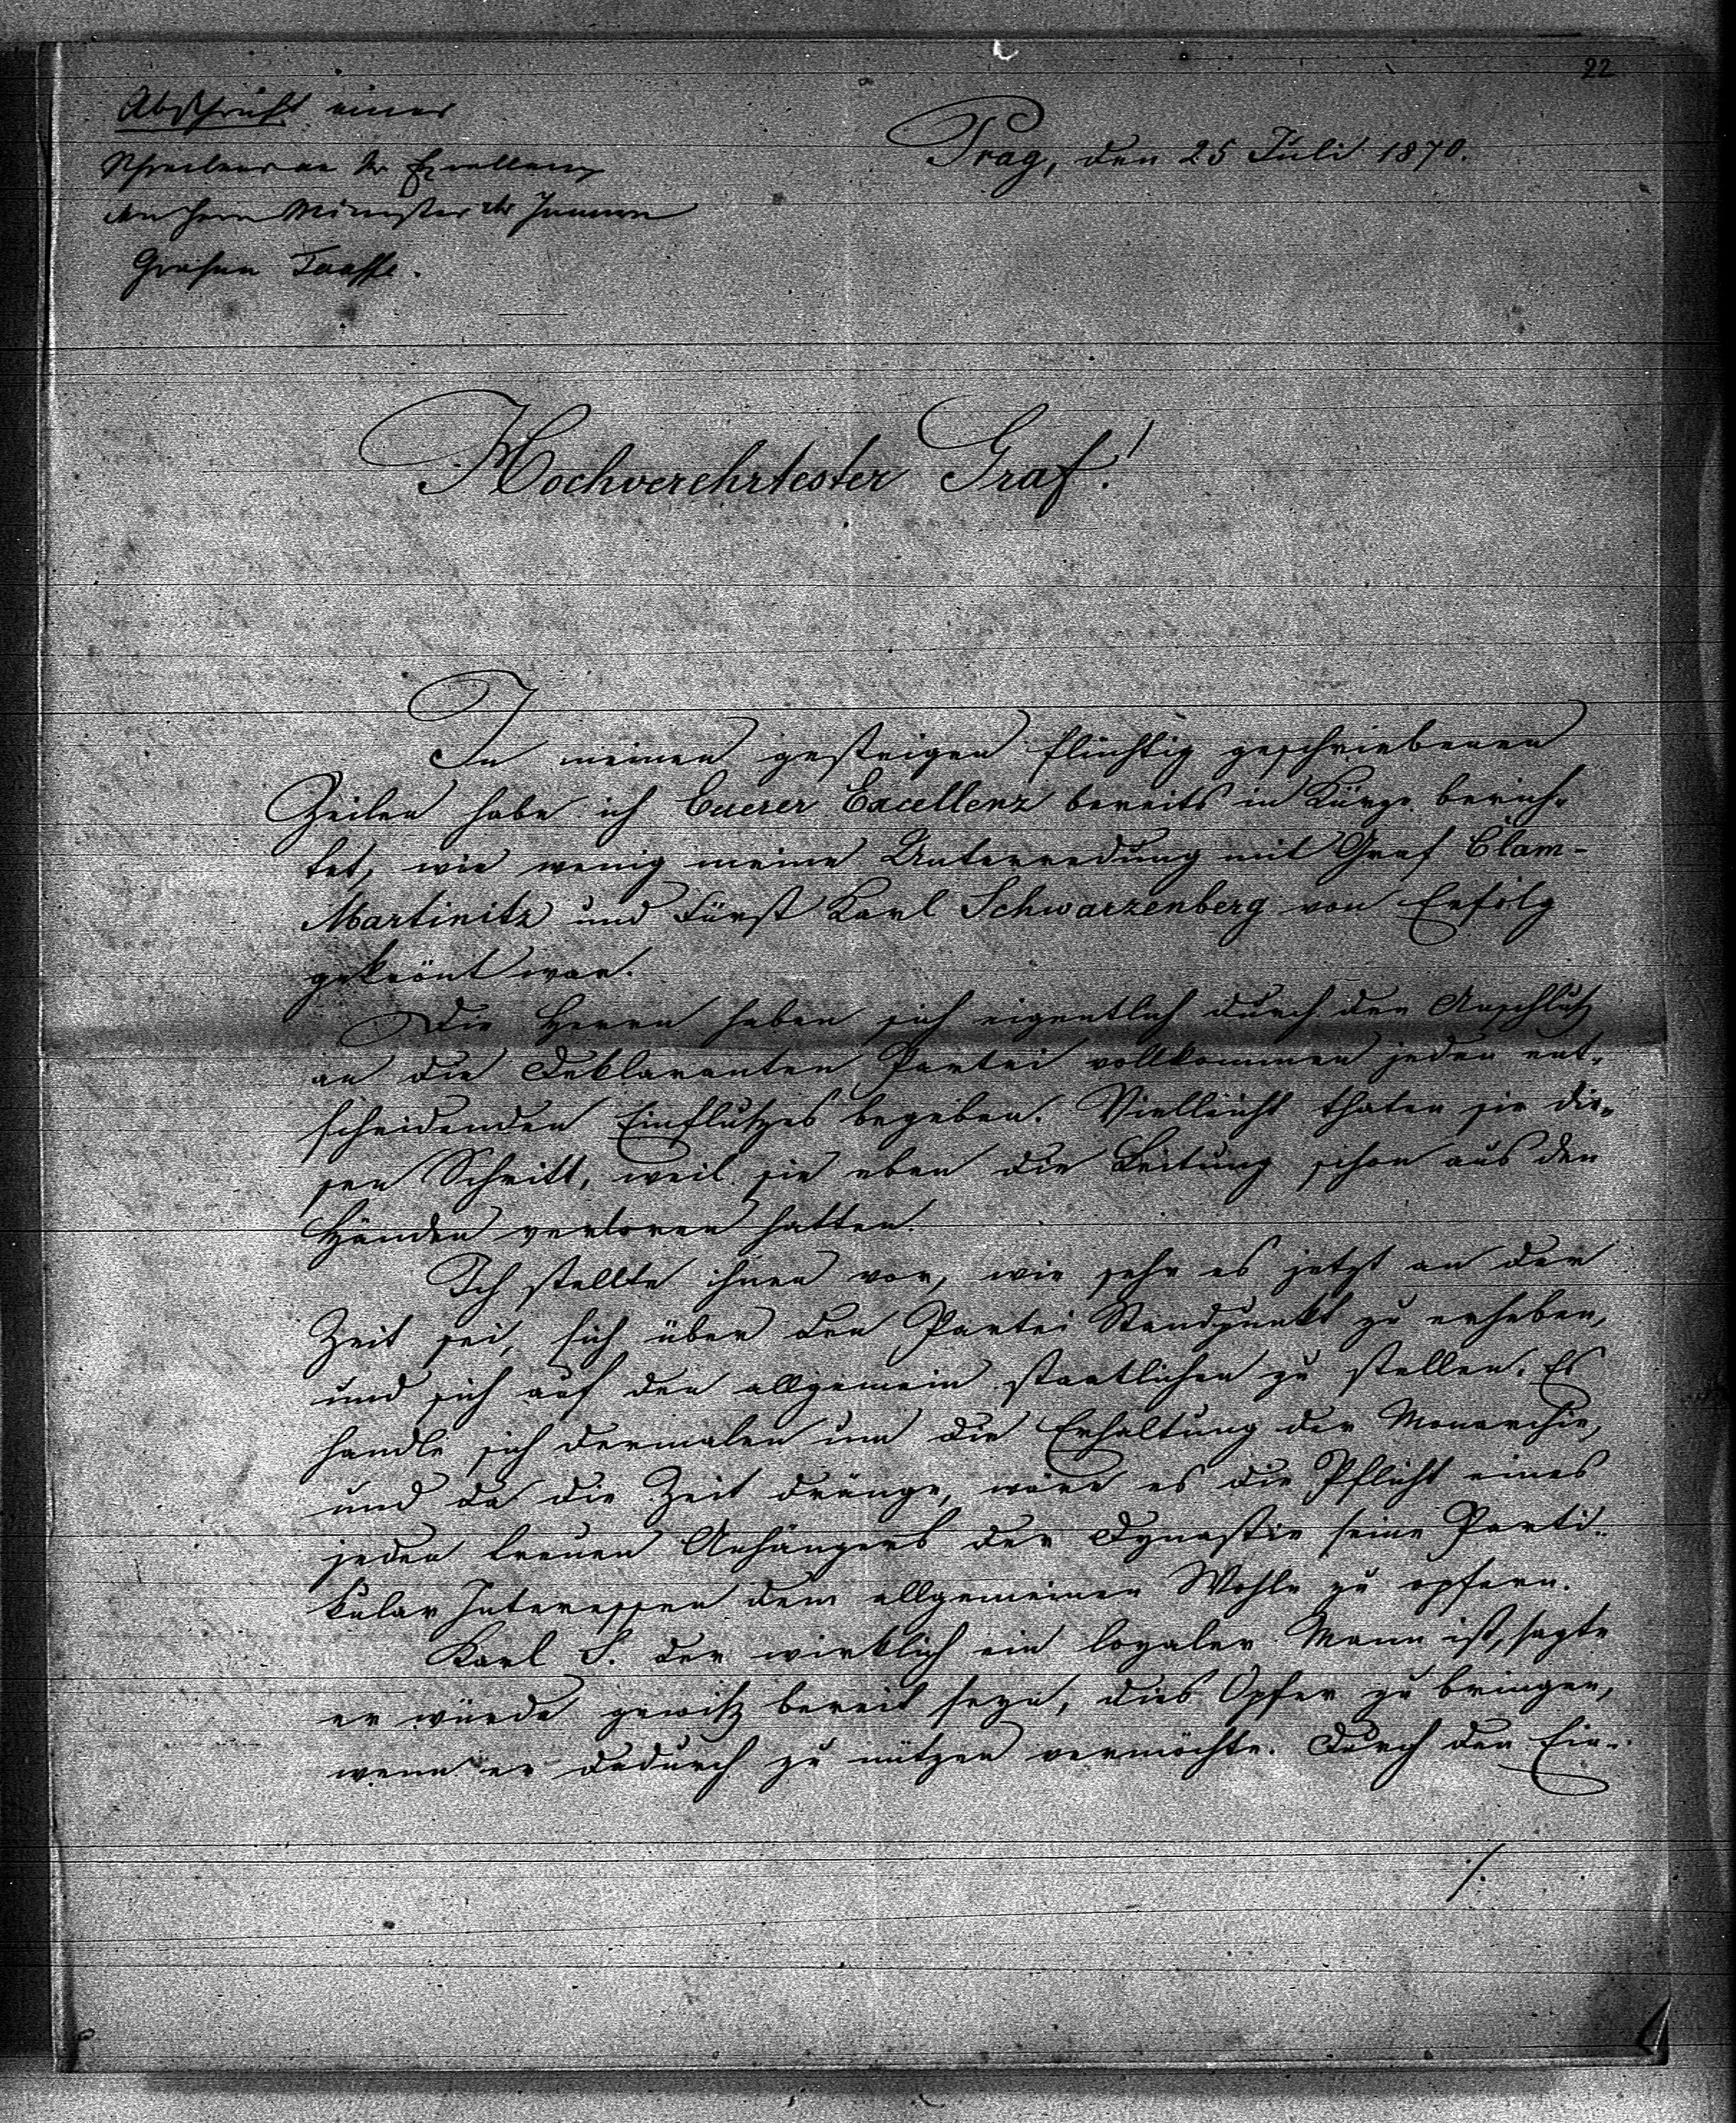 22
Abschrift eines
Schreibens an Se Exzellenz
den Herrn Minister des Innern
Grafen Taaffe.
Prag, den 25 Juli 1870.
Hochverehrtester Graf!
In meinen gestrigen flüchtig geschriebenen
Zeilen habe ich Euerer Excellenz bereits in Kürze berich-
tet, wie wenig meine Unterredung mit Graf Clam-
Martinitz und Fürst Karl Schwarzenberg von Erfolg
gekrönt war.
Die Herrn haben sich eigentlich durch den Anschluß
an die Deklaranten Partei vollkommen jeden ent-
scheidenden Einflußes begeben. Vielleicht thaten sie die-
sen Schritt, weil sie eben die Leitung schon aus den
Händen verloren hatten.
Ich stellte ihnen vor, wie sehr es jetzt an der
Zeit sei, sich über den Partei Standpunkt zu erheben,
und sich auf den allgemein staatlichen zu stellen. Es
handle sich dermalen um die Erhaltung der Monarchie,
und da die Zeit dränge, wäre es die Pflicht eines
jeden treuen Anhängers der Dynastie seine Parti-
kular Interessen dem allgemeinen Wohle zu opfern.
Karl S. der wirklich ein loyaler Mann ist, sagte
er würde gewiß bereit seyn, dies Opfer zu bringen,
wenn er dadurch zu nützen vermöchte. Durch den Ein-
./.